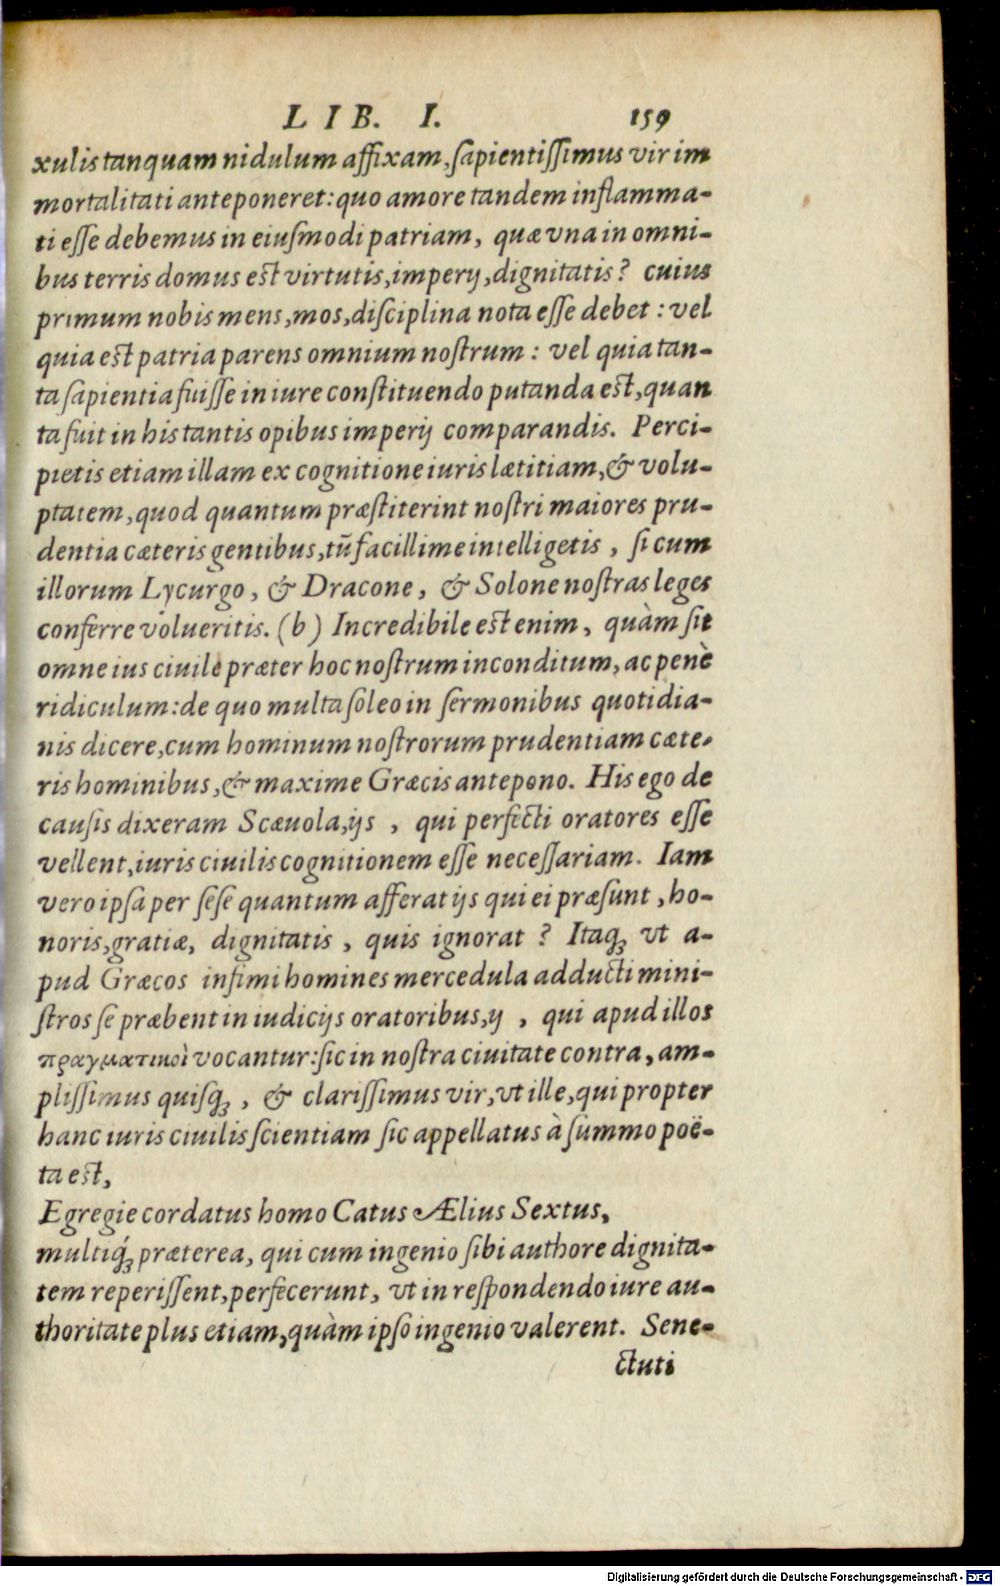 LIB. I. 159
xulis tanquam nidulum affixam, sapientissimus vir im
mortalitati anteponeret: quo amore tandem inflamma-
ti esse debemus in eiusmodi patriam, quæ vna in omni-
bus terris domus est virtutis, imperij, dignitatis? cuius
primum nobis mens, mos, disciplina nota esse debet: vel
quia est patria parens omnium nostrum: vel quia tan-
ta sapientia fuisse in iure constituendo putanda est, quan
ta fuit in his tantis opibus imperij comparandis. Perci-
pietis etiam illam ex cognitione iuris lætitiam, & volu-
ptatem, quod quantum præstiterint nostri maiores pru-
dentia cæteris gentibus, tũ facillime intelligetis, si cum
illorum Lycurgo, & Dracone, & Solone nostras leges
conferre volueritis. (b) Incredibile est enim, quàm sit
omne ius ciuile præter hoc nostrum inconditum, ac penè
ridiculum: de quo multa soleo in sermonibus quotidia-
nis dicere, cum hominum nostrorum prudentiam cæte-
ris hominibus, & maxime Græcis antepono. His ego de
causis dixeram Scæuola, ijs, qui perfecti oratores esse
vellent, iuris ciuilis cognitionem esse necessariam. Iam
vero ipsa per sese quantum afferat ijs qui ei præsunt, ho-
noris, gratiæ, dignitatis, quis ignorat? Itaqꝫ vt a-
pud Græcos infimi homines mercedula adducti mini-
stros se præbent in iudicijs oratoribus, ij, qui apud illos
πραγματικοὶ vocantur: sic in nostra ciuitate contra, am-
plissimus quisqꝫ, & clarissimus vir, vt ille, qui propter
hanc iuris ciuilis scientiam sic appellatus à summo poë-
ta est,
Egregie cordatus homo Catus Ælius Sextus,
multiq́ꝫ præterea, qui cum ingenio sibi authore dignita-
tem reperissent, perfecerunt, vt in respondendo iure au-
thoritate plus etiam, quàm ipso ingenio valerent. Sene-
ctuti
Digitalisierung gefördert durch die Deutsche Forschungsgemeinschaft - DFG